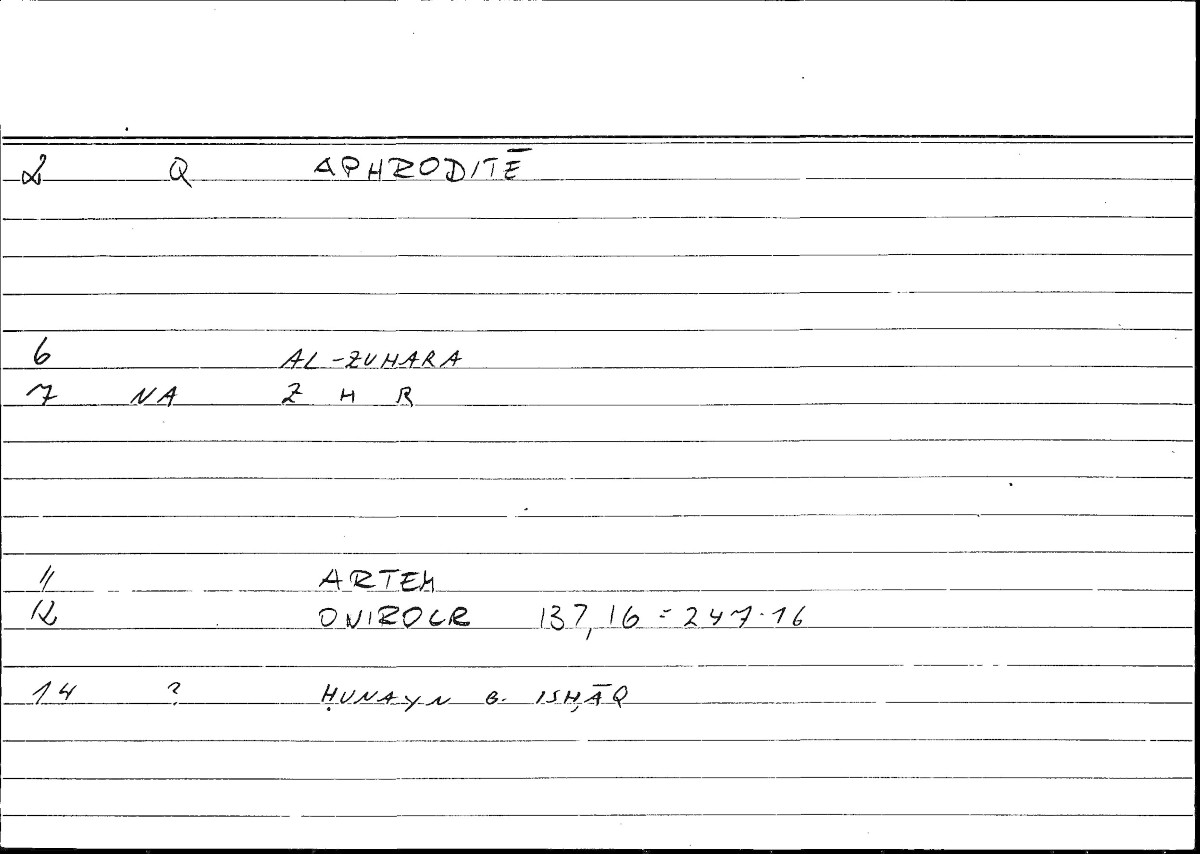 2 Q APHRODITĒ
6 AL-ZUHARA
7 NA Z H R
11 ARTEM
12 ONIROCR 137,16 = 247.16
14 ? ḤUNAYN B. ISḤĀQ